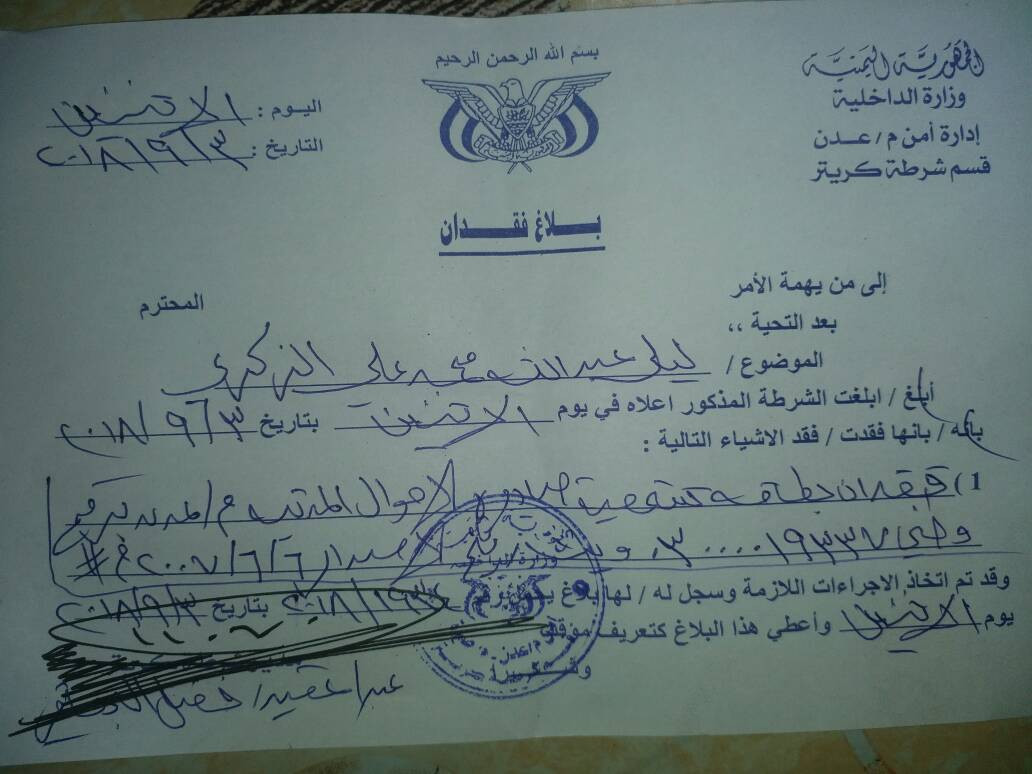 بسم الله الرحمن الرحيم
الجمهورية اليمنية
وزارة الداخلية
إدارة أمن م / عدن
قسم شرطة كريتر
اليوم : الاثنين
التاريخ : ٢٠١٨/٩/٣
بلاغ فقدان
إلى من يهمة الأمر المحترم
بعد التحية ،،
الموضوع / ليلى عبدالله محمد علي
أبلغ / ابلغت الشرطة المذكور اعلاه في يوم الاثنين بتاريخ ٢٠١٨/٩/٣
بأنه / بانها فقدت / فقد الاشياء التالية :
1) فقدان بطاقة شخصية صادره الاحوال المدنية م/ عدن برقم
وطني ٠٣٠٠٠٠١٩٣٣٧ الاصدار ٢٠٠٧/٦/٦م #
وقد تم اتخاذ الاجراءات اللازمة وسجل له / لها بلاغ بتاريخ ٢٠١٨/٩/٣
يوم الاثنين وأعطي هذا البلاغ كتعريف مؤقت